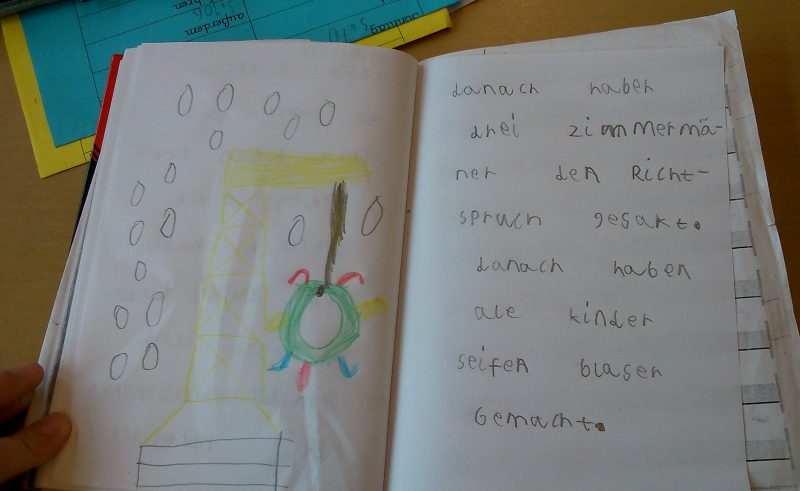 außerdem
sonntag
danach haben
drei zimmermä-
ner den Richt-
spruch gesakt.
danach haben
ale kinder
seifen blasen
Gemacht.